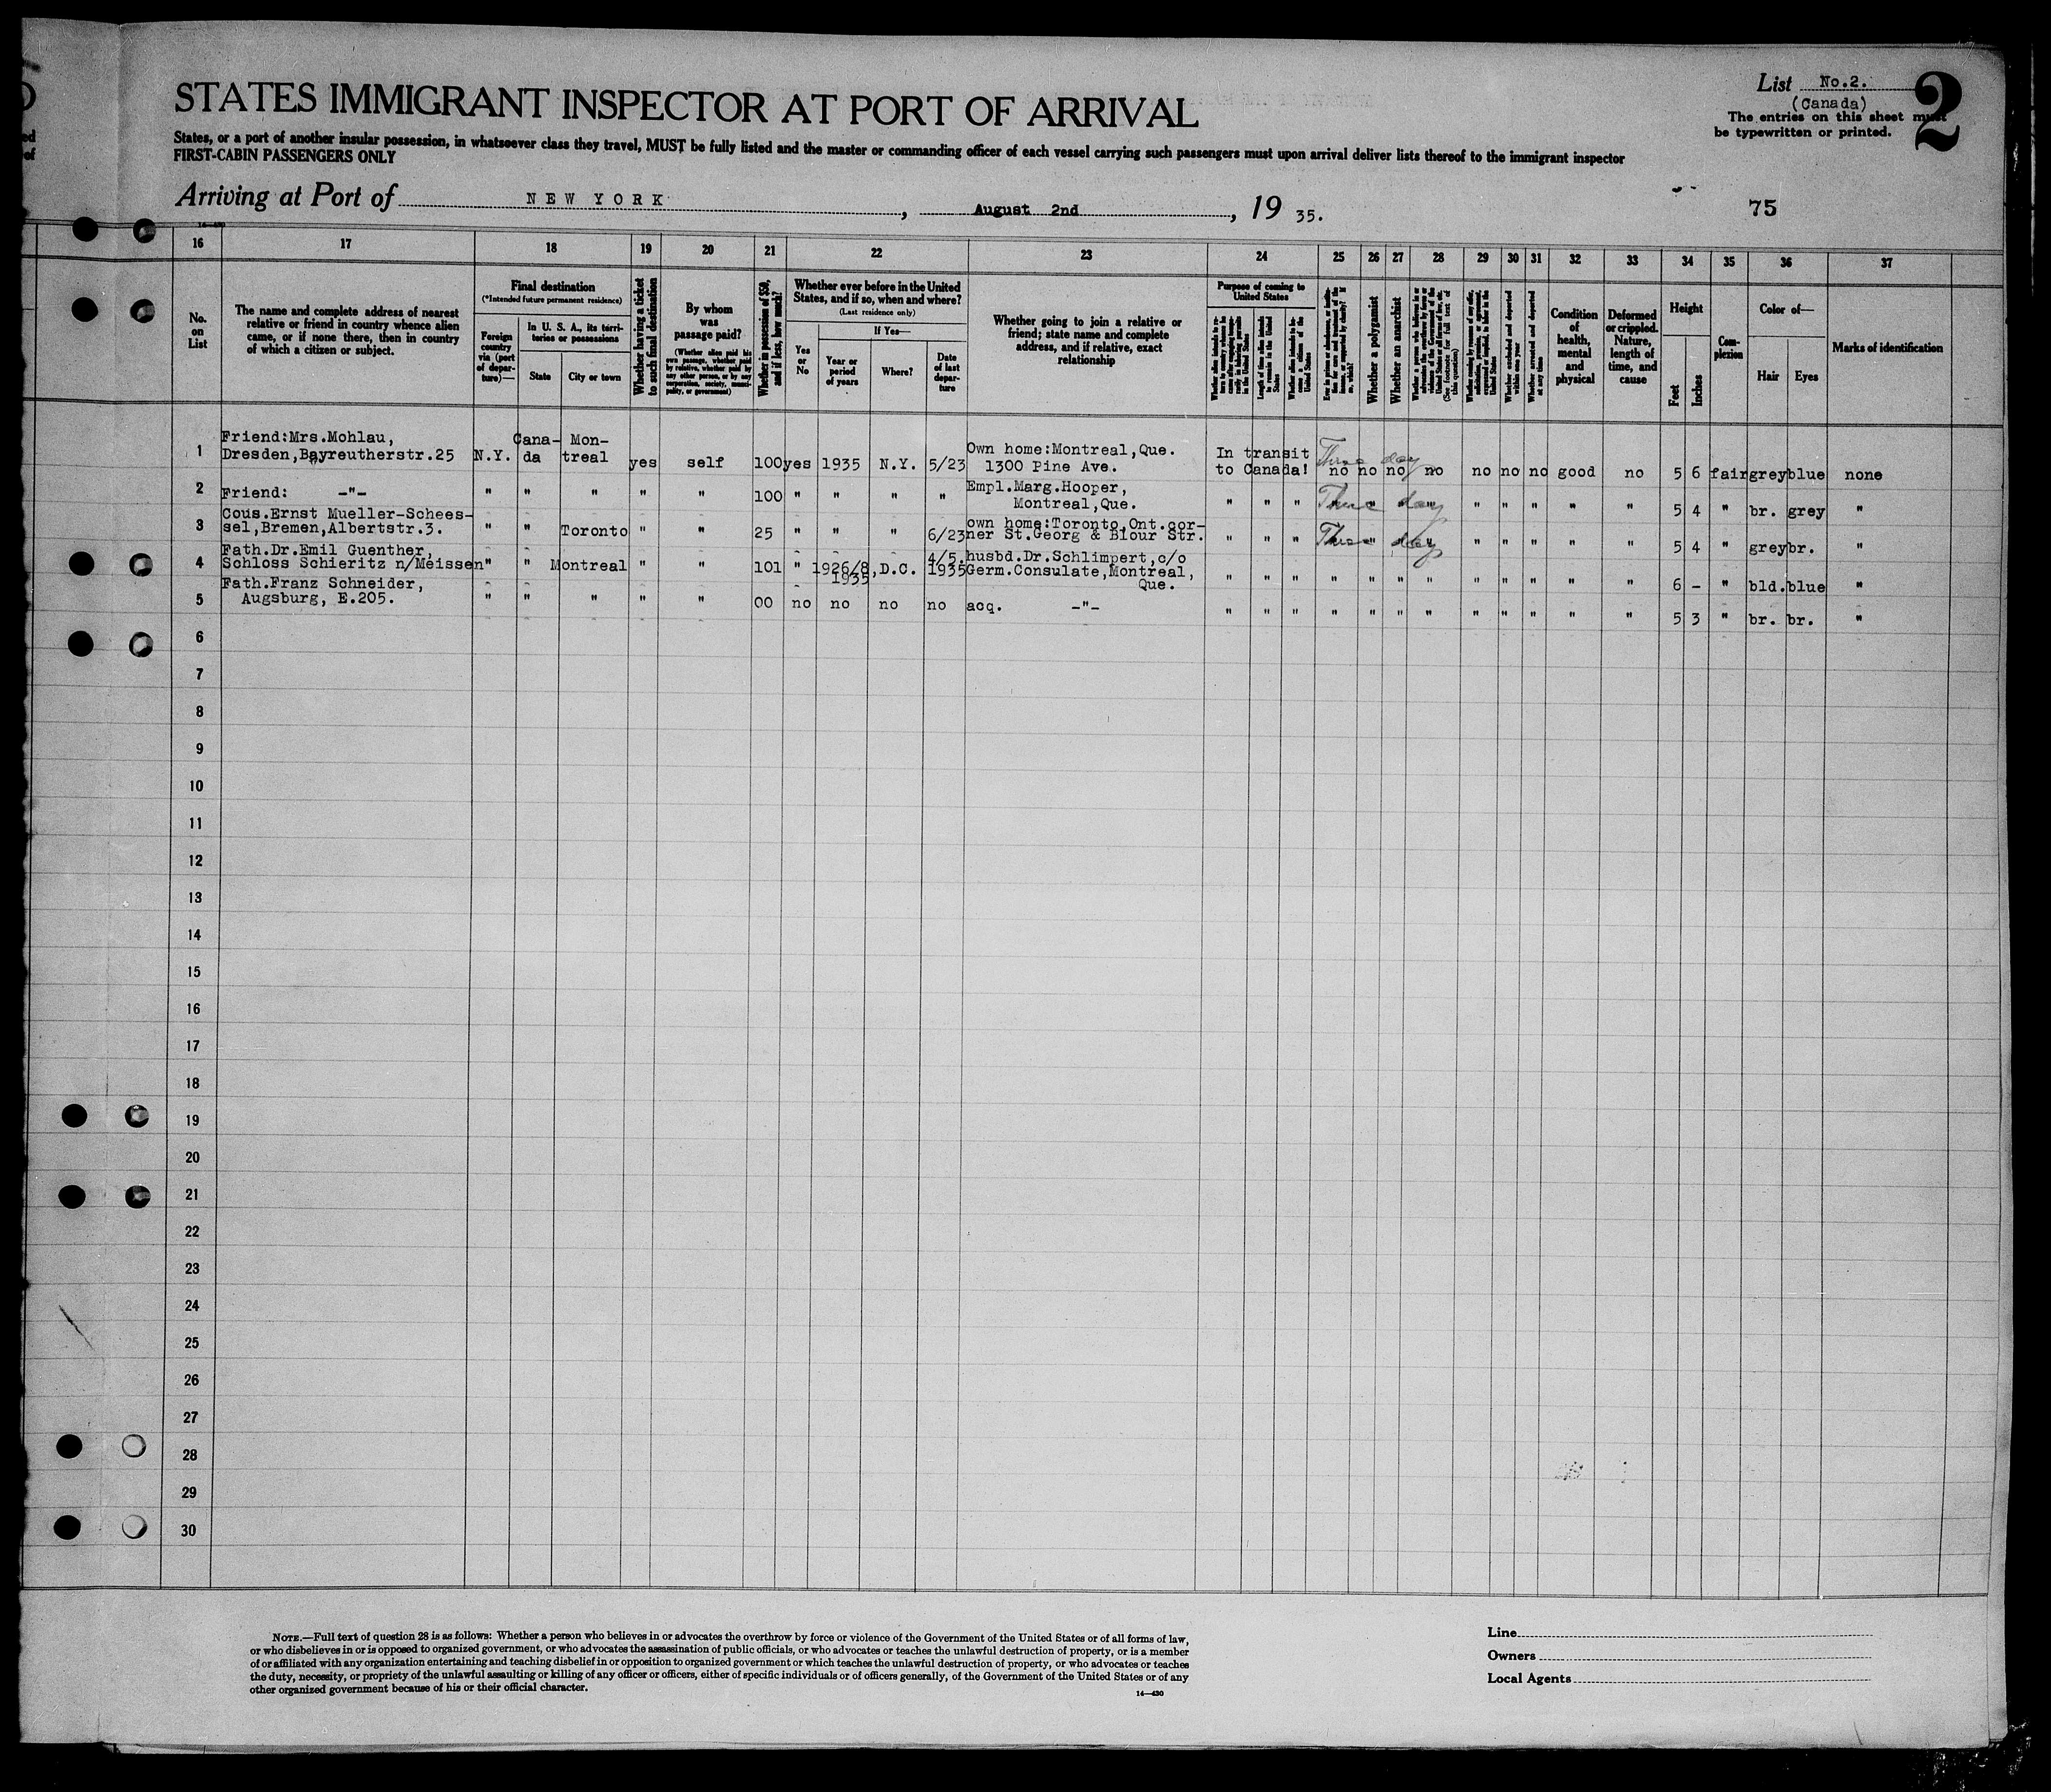 List No.2.
(Canada)
2
The entries on this sheet must
be typewritten or printed.
STATES IMMIGRANT INSPECTOR AT PORT OF ARRIVAL
States, or a port of another insular possession, in whatsoever class they travel, MUST be fully listed and the master or commanding officer of each vessel carrying such passengers must upon arrival deliver lists thereof to the immigrant inspector
FIRST-CABIN PASSENGERS ONLY
Arriving at Port of NEW YORK, August 2nd, 19 35.
75
16 17 18 19 20 21 22 23 24 25 26 27 28 29 30 31 32 33 34 35 36 37
No.
on
List
The name and complete address of nearest
relative or friend in country whence alien
came, or if none there, then in country
of which a citizen or subject.
Final destination
(*Intended future permanent residence)
Foreign
country
via (port
of depar-
ture)—
In U. S. A., its terri-
tories or possessions
State
City or town
Whether having a ticket
to such final destination
By whom
was
passage paid?
(Whether alien paid his
own passage, whether paid
by relative, whether paid by
any other person, or by any
corporation, society, munici-
pality, or government)
Whether in possession of $50,
and if less, how much?
Whether ever before in the United
States, and if so, when and where?
(Last residence only)
Yes
or
No
If Yes—
Year or
period
of years
Where?
Date
of last
depar-
ture
Whether going to join a relative or
friend; state name and complete
address, and if relative, exact
relationship
Purpose of coming to
United States
Length of time alien intends
to remain in the United
States
Whether alien intends to be-
come a citizen of the
United States
Whether a polygamist
Whether an anarchist
(See footnote for full text of
this question)
Whether excluded and deported
within one year
Whether arrested and deported
at any time
Condition
of
health,
mental
and
physical
Deformed
or crippled.
Nature,
length of
time, and
cause
Height
Feet
Inches
Com-
plexion
Color of—
Hair
Eyes
Marks of identification
1 Friend:Mrs.Mohlau,
Dresden,Bayreutherstr.25 N.Y. Cana-
da Mon-
treal yes self 100 yes 1935 N.Y. 5/23 Own home:Montreal,Que.
1300 Pine Ave. In transit
to Canada! Three day no no no no no no no good no 5 6 fair grey blue none
2 Friend: -"- " " " " " 100 " " " " Empl.Marg.Hooper,
Montreal,Que. " " " Three day " " " " " " " " 5 4 " br. grey "
3 Cous.Ernst Mueller-Schees-
sel,Bremen,Albertstr.3. " " Toronto " " 25 " " " 6/23 own home:Toronto,Ont.cor-
ner St.Georg & Blour Str. " " " Three day " " " " " " " " 5 4 " grey br. "
4 Fath.Dr.Emil Guenther,
Schloss Schieritz n/Meissen " " Montreal " " 101 " 1926/8,
1935 D.C. 4/5.
1935 husbd.Dr.Schlimpert,c/o
Germ.Consulate,Montreal,
Que. " " " " " " " " " " " " 6 - " bld. blue "
5 Fath.Franz Schneider,
Augsburg, E.205. " " " " " 00 no no no no acq. -"- " " " " " " " " " " " " 5 3 " br. br. "
6
7
8
9
10
11
12
13
14
15
16
17
18
19
20
21
22
23
24
25
26
27
28
29
30
NOTE.—Full text of question 28 is as follows: Whether a person who believes in or advocates the overthrow by force or violence of the Government of the United States or of all forms of law,
or who disbelieves in or is opposed to organized government, or who advocates the assassination of public officials, or who advocates or teaches the unlawful destruction of property, or is a member
of or affiliated with any organization entertaining and teaching disbelief in or opposition to organized government or which teaches the unlawful destruction of property, or who advocates or teaches
the duty, necessity, or propriety of the unlawful assaulting or killing of any officer or officers, either of specific individuals or of officers generally, of the Government of the United States or of any
other organized government because of his or their official character.
14—430
Line
Owners
Local Agents